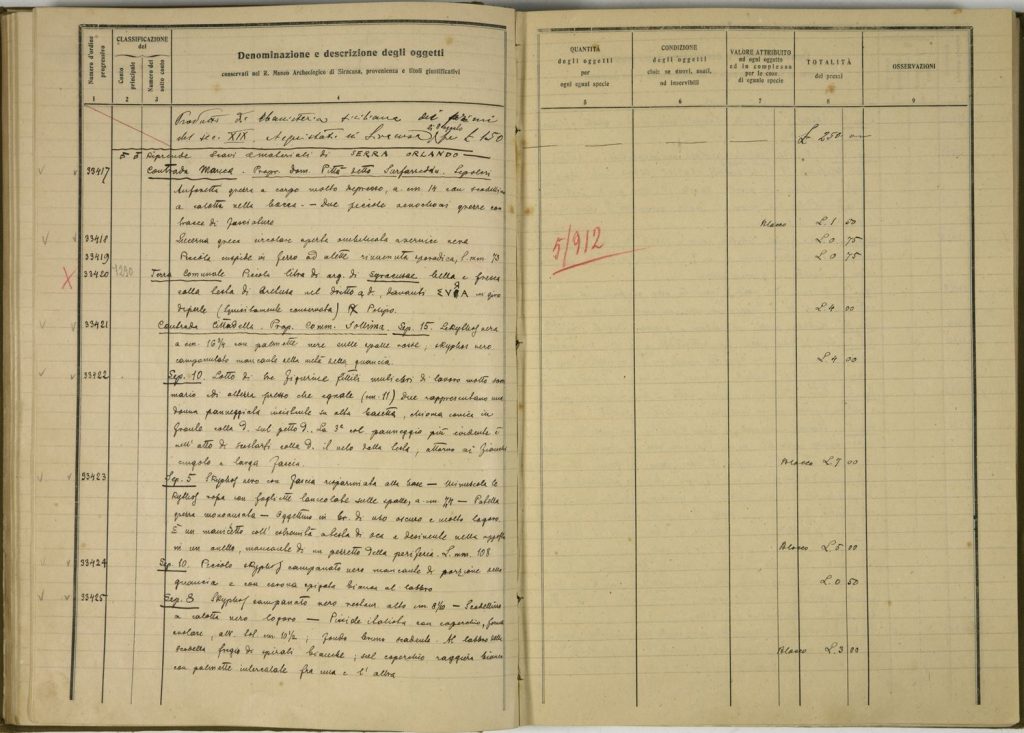 Numero d'ordine progressivo
CLASSIFICAZIONE del
Conto principale
Numero del sotto conto
Denominazione e descrizione degli oggetti
conservati nel R. Museo Archeologico di Siracusa, provenienza e titoli giustificativi
1 2 3 4
Prodotti di siciliana dei
del sec. XIX. Acquistati in Siracusa per £ 250
Riprendo scavi e materiali di SERRA ORLANDO
33417 Contrada Manca. Propr. dom. Pittà detto Sepolcri
Anforetta grezza a corpo molto depresso, a. cm. 14 con scodellina
a calotta nella bocca. — Due piccole oenochoai grezze con
tracce di fasciature
33418 Lucerna greca circolare aperta ombelicata a vernice nera
33419 Piccola cuspide in ferro ad alette rinvenuta sporadica, l. mm 73
33420 1290 Terra Comunale Piccola litra di arg. di Syracusae bella e fresca
colla testa di Arethusa nel dritto a d. davanti ΣΥΡΑ in giro
deperle (squisitamente conservata) R Polipo.
33421 Contrada Cittadella. Prop. Comm. Sollima. Sep. 15. Lekythos nera
a. cm. 16 3/4 con palmette nere sulle spalle rosse, skyphos nero
campanulato mancante della metà della guancia.
33422 Sep. 10. Lotto di tre figurine fittili muliebri di lavoro molto som
mario di altezza presso che eguale (cm. 11) Due rappresentano una
donna panneggiata insistente su alta basetta, chioma conica in
fronte colla d. sul petto d. La 3ª col panneggio più evidente è
nell'atto di scostarsi colla d. il velo dalla testa, attorno ai fianchi
cingolo e larga fascia.
33423 Sep. 5 Skyphos nero con fascia risparmiata alla base — Minuscola le
kythos rossa con fogliette lanceolate sulle spalle, a. — Patella
grezza monoansata — Oggettino in br. di uso oscuro e molto logoro.
È un manichetto coll' estremità a testa di oca e desinente nella opposta
in un anello, mancante di un pezzetto della periferia. L. mm. 108
33424 Sep. 10. Piccolo skyphos campanato nero mancante di porzione della
guancia e con corona bianca al labbro
33425 Sep. 8 Skyphos campanato nero restaur. alto cm — Scodellina
a calotta nero logoro — Pisside italiota con coperchio,
alt. tot. cm. 10 1/2; fondo bruno scadente. Al labbro della
scodella fregio di spirali bianche; sul coperchio raggiera bianca
con palmette intercalate fra una e l'altra
QUANTITÀ degli oggetti per ogni egual specie
CONDIZIONE degli oggetti cioè: se nuovi, usati, od inservibili
VALORE ATTRIBUITO ad ogni oggetto od in complesso per le cose di eguale specie
TOTALITÀ dei prezzi
OSSERVAZIONI
5 6 7 8 9
£ 250
5/912
Blocco L. 1 50
L. 0 75
L. 0 75
L. 4 00
L. 4 00
Blocco L. 7 00
Blocco L. 5 00
L. 0 50
Blocco L. 3 00